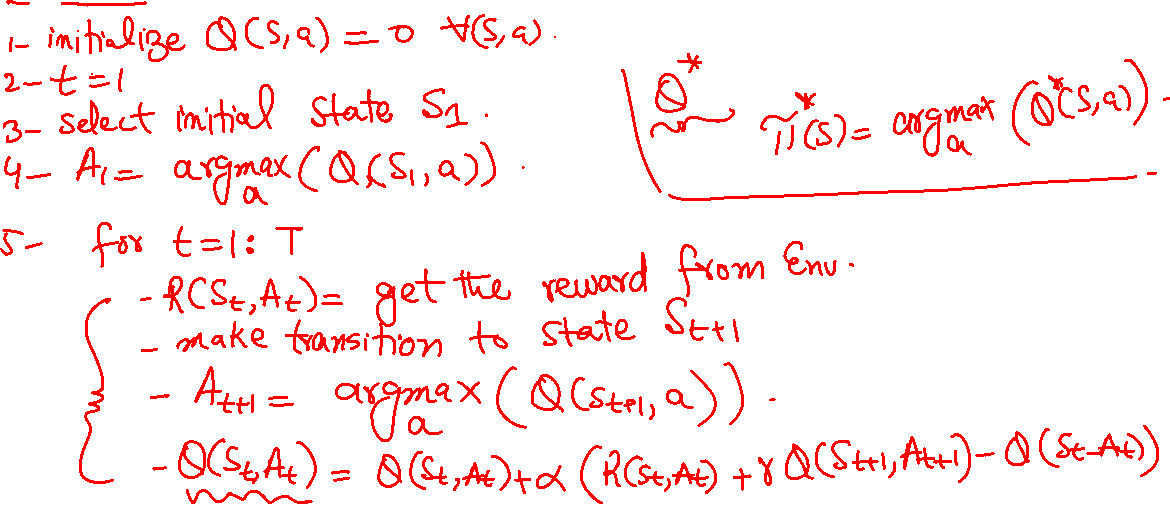 1- initialize Q(S,a) = 0 ∀(S,a).
2- t=1
3- select initial state S1.
4- A1 = argmax_a (Q(S1,a)).
Q* π*(s) = argmax_a (Q*(s,a)).
5- for t=1:T
- R(St,At) = get the reward from Env.
- make transition to state St+1
- At+1 = argmax_a (Q(St+1,a)).
- Q(St,At) = Q(St,At)+α (R(St,At) + γ Q(St+1,At+1) - Q(St-At))